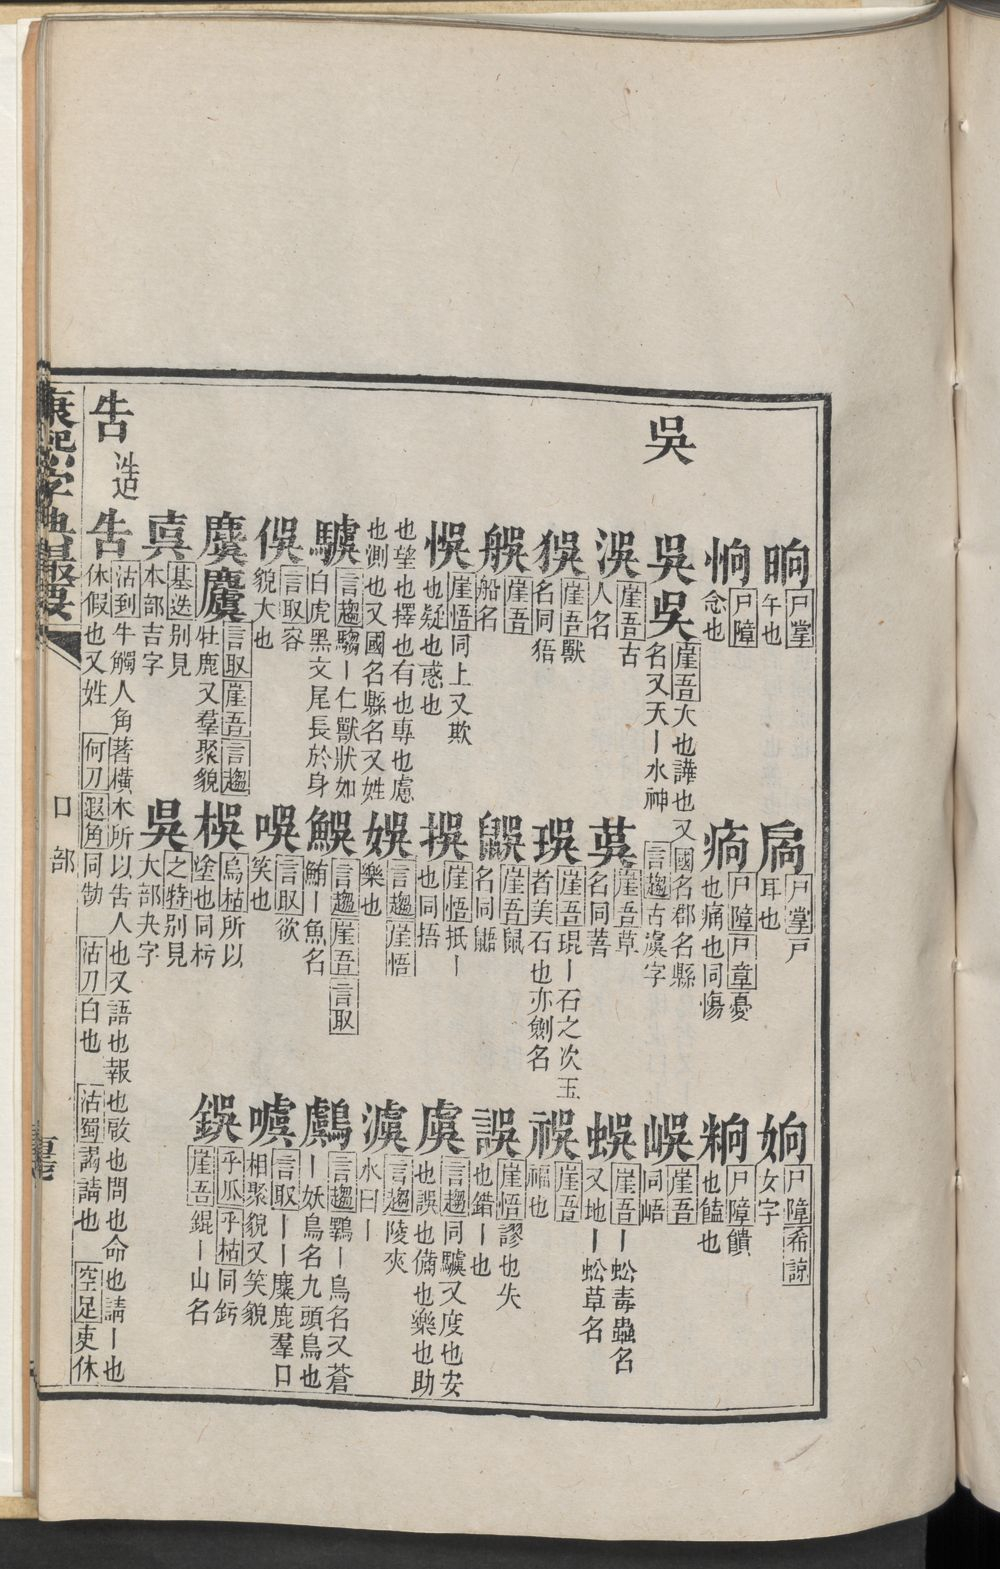 晌 戶掌午也
扄 戶掌戶耳也
姠 戶障希諒女字
恦 戶障念也
痏 戶障戶章憂也痛也同愓
粡 戶障饋也饁也
吳
吳吴 崖吾大也譁也又國名郡名縣名又天丨水神 言趨古澞字
峿 崖吾同峿
洖 崖吾古人名
茣 崖吾草名同菩
蜈 崖吾丨蚣毒蟲名又地丨蚣草名
猰 崖吾獸名同猺
珸 崖吾琨丨石之次玉者美石也亦劍名
祦 崖吾福也
艉 崖吾船名
鼯 崖吾鼠名同鼯
誤 崖悟謬也失也錯丨也
悞 崖悟同上又欺也疑也惑也
捂 崖悟抵丨也同捂
虞 言趨同驉又度也安也望也擇也有也專也慮也測也又國名縣名又姓 也誤也備也樂也助
娛 言趨崖悟樂也
澞 言趨陵夾水曰丨
驉 言趨騶丨仁獸狀如白虎黑文尾長於身
鯃 言趨崖吾言取鮪丨魚名
鸆 言趨鸅丨鳥名又蒼丨妖鳥名九頭鳥也
俁 言取容貌大也
噳 言取欲笑也
噳 言取丨丨麋鹿羣口相聚貌又笑貌
麌 言取崖吾言趨牡鹿又羣聚貌
杇 烏枯所以塗也同杇
鋘 乎瓜乎枯同釫 崖吾錕丨山名
真 基迭別見本部吉字
吳 之特別見大部夬字
吿 造
告 沽到牛觸人角著橫木所以告人也又語也報也啟也問也命也請丨也休假也又姓 何刀遐角同嚳 沽刀白也 沽蜀謁請也 空足吏休
康熙字典撮要
口部